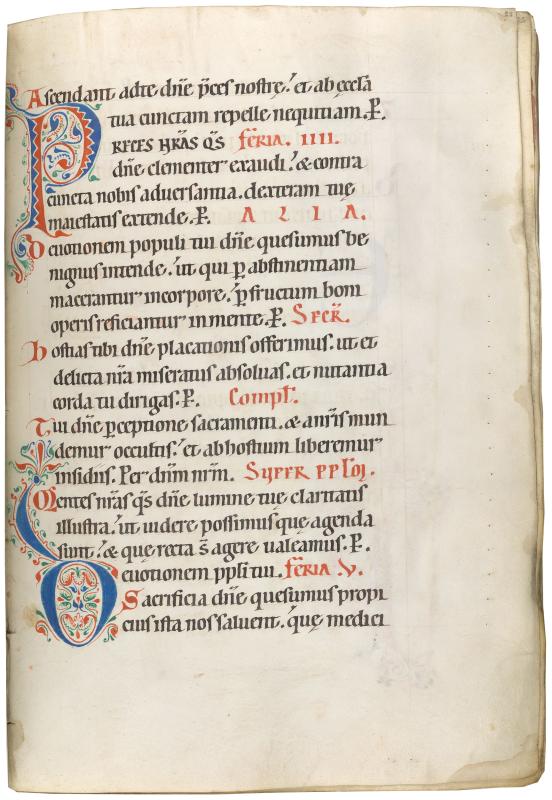 Ascendant adte dñe p̄ces nostrę. et ab ęcc̄la
tua cunctam repelle nequitiam. P̲.
PRECES NR̄AS QS̄ FERIA. IIII.
dñe clementer exaudi. & contra
cuncta nobis aduersantia. dexteram tuę
maiestatis extende. P̲. ALIA.
Deuotionem populi tui dñe quesumus be
nignus intende. ut qui ꝑ abstinentiam
macerantur incorpore. ꝑ fructum boni
operis reficiantur inmente. P̲. SECR̄.
Hostias tibi dñe placationis offerimus. ut et
delicta nr̄a miseratus absoluas. et nutantia
corda tu dirigas. P̲. Compl̄.
Tui dñe ꝑceptione sacramenti. & anr̄is mun
demur occultis. et abhostium liberemur
insidiis. Per dñm nr̄m. SUPER PPLM̄.
Mentes nr̄as qs̄ dñe lumine tuę claritatis
illustra. ut uidere possimus que agenda
sunt. & quę recta s̄ agere ualeamus. P̲.
Deuotionem ppl̄i tui. FERIA V.
Sacrificia dñe quesumus propi
cius ista nos saluent. quę medici